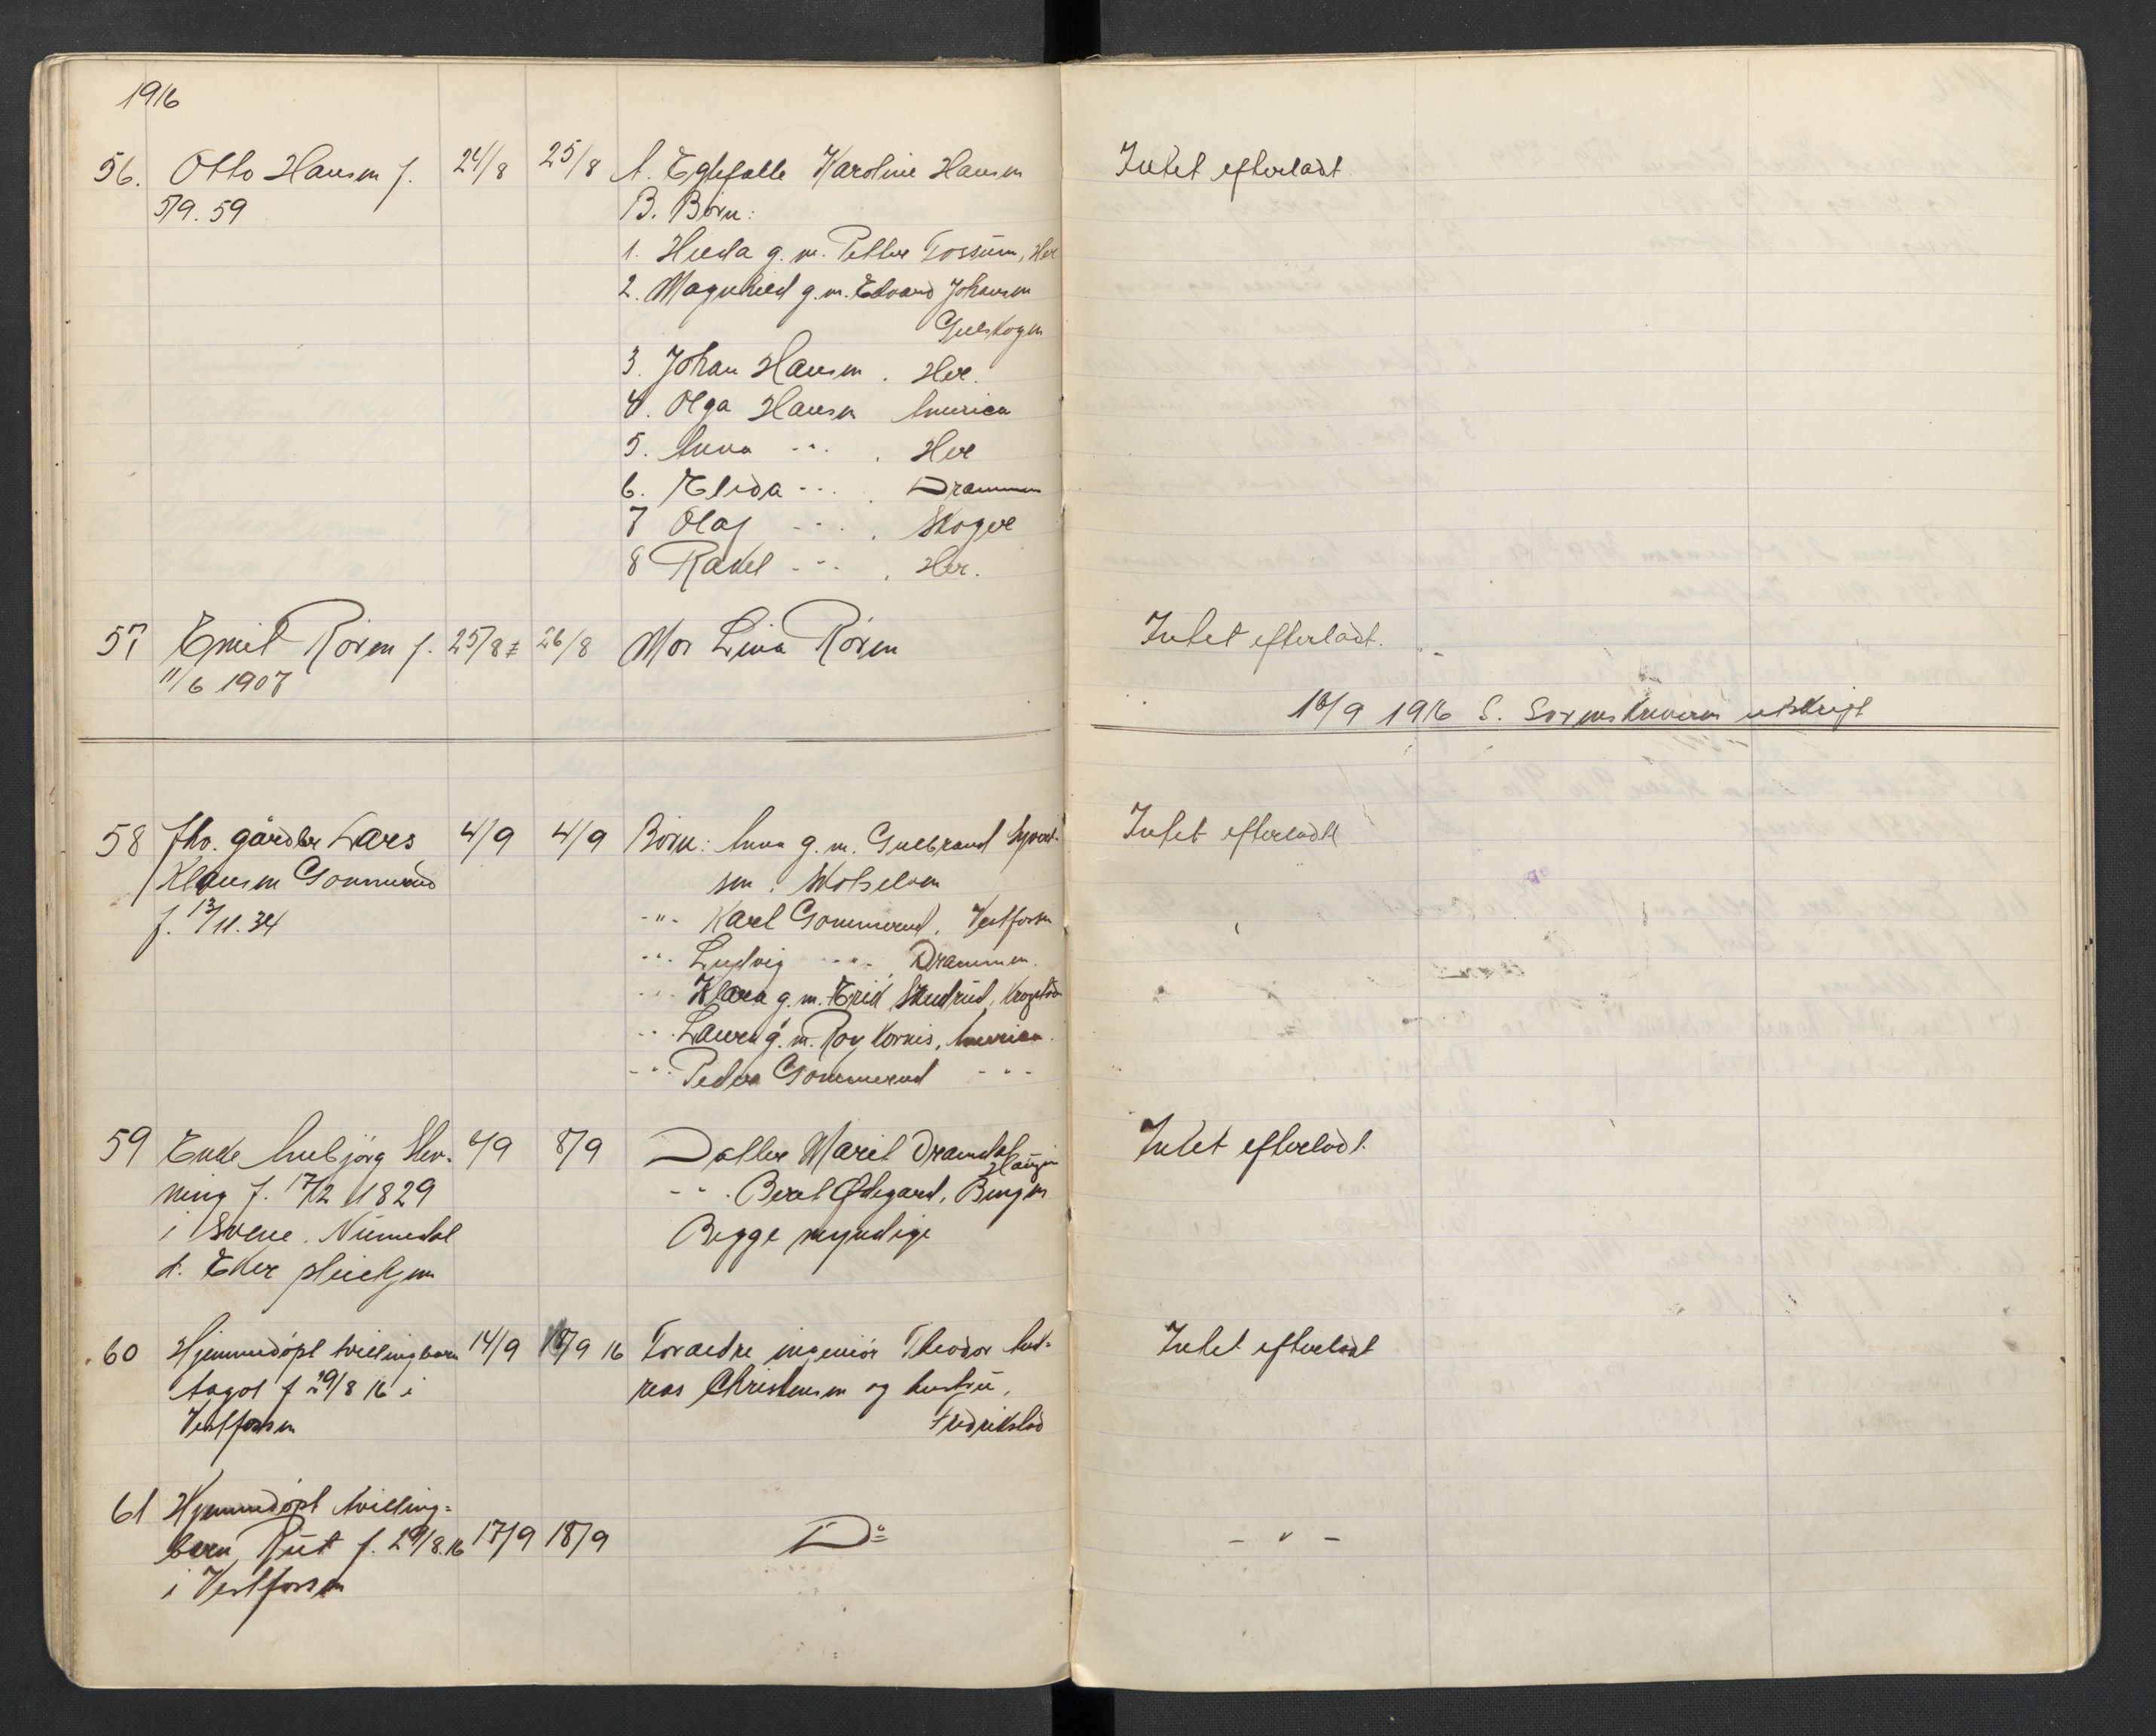 1916
56. Otto Hansen f. 24/8 25/8 A. Egtefælle Karoline Hansen Intet efterladt.
5/9. 59 B. Børn:
1. Hulda g. m. Petter Fossum, Her
2. Magnhild g. m. Edvard Johansen
Gulskogen
3. Johan Hansen. Her.
4. Olga Hansen America
5. Anna -"- . Her
6. Elida -"- . Drammen
7 Olaf -"- . Skoger
8 Rakel -"- . Her.
57 Emil Røren f. 25/8 26/8 Mor Lina Røren Intet efterladt.
11/6 1907
18/9 1916 S. Sorenskriveren utskrift
58 Fhv. gårdbr Lars 4/9 4/9 Børn: Anna g. m. Gulbrand Syvert- Intet efterladt
Klausen Gommerud sen. Skotselven
f. 13/11. 34 -"- Karl Gommerud, Vestfossen
-"- Ludvig -"- Drammen.
-"- Klara g. m. Erik Skudrud, Krogstad
-"- Laura g. m. Roy Kornis, America.
-"- Peder Gommerud -"-
59 Enke Anebjørg Slev- 6/9 8/9 Datter Marit Dramdal Intet efterladt.
ning f. 17/2 1829 Haugen
-"- Berit Ødegard, Bingen
i Svene. Numedal Begge myndige
d. Eker pleiehjem
60 Hjemmedøpt tvillingbarn 14/9 18/9 16 Foraeldre ingeniør Theodor And- Intet efterladt
Aagot f 29/8 16 i reas Christensen og hustru,
Vestfossen Fredrikstad
61 Hjemmedøpt tvilling-
barn Rut f. 29/8.16 17/9 18/9 Do - " -
i Vestfossen